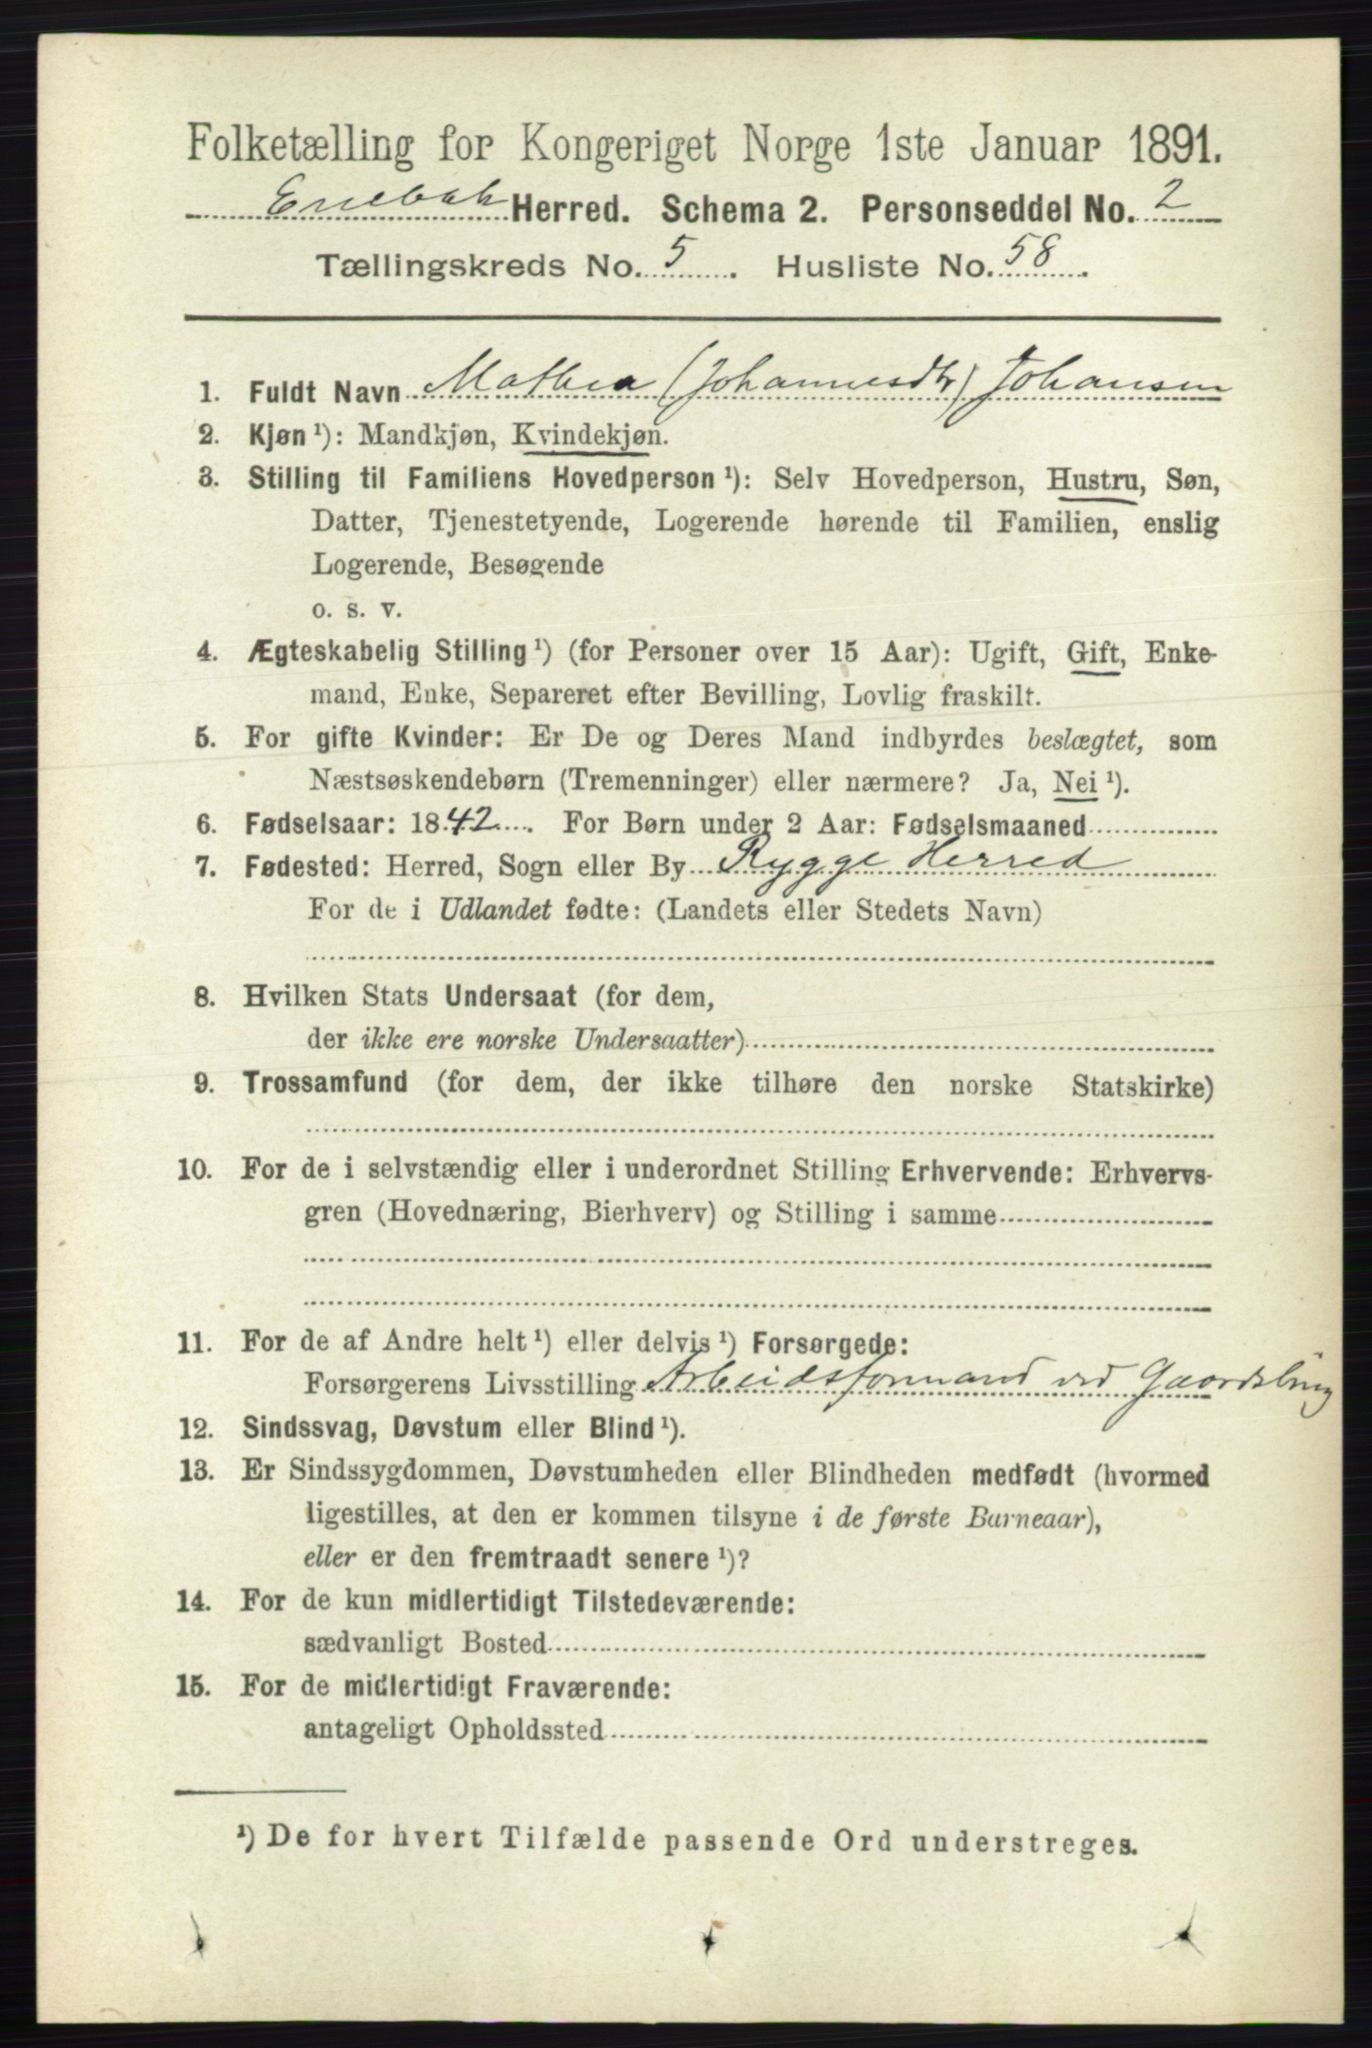 Folketælling for Kongeriget Norge 1ste Januar 1891.
Enebak Herred. Schema 2. Personseddel No. 2
Tællingskreds No. 5. Husliste No. 58.
1. Fuldt Navn Mathea (Johannesdtr) Johansen
2. Kjøn ¹): Mandkjøn, Kvindekjøn.
3. Stilling til Familiens Hovedperson ¹): Selv Hovedperson, Hustru, Søn,
Datter, Tjenestetyende, Logerende hørende til Familien, enslig
Logerende, Besøgende
o. s. v.
4. Ægteskabelig Stilling ¹) (for Personer over 15 Aar): Ugift, Gift, Enke-
mand, Enke, Separeret efter Bevilling, Lovlig fraskilt.
5. For gifte Kvinder: Er De og Deres Mand indbyrdes beslægtet, som
Næstsøskendebørn (Tremenninger) eller nærmere? Ja, Nei ¹).
6. Fødselsaar: 1842. For Børn under 2 Aar: Fødselsmaaned
7. Fødested: Herred, Sogn eller By Rygge Herred
For de i Udlandet fødte: (Landets eller Stedets Navn)
8. Hvilken Stats Undersaat (for dem,
der ikke ere norske Undersaatter)
9. Trossamfund (for dem, der ikke tilhøre den norske Statskirke)
10. For de i selvstændig eller i underordnet Stilling Erhvervende: Erhvervs-
gren (Hovednæring, Bierhverv) og Stilling i samme
11. For de af Andre helt ¹) eller delvis ¹) Forsørgede:
Forsørgerens Livsstilling Arbeidsformand ved Gaardsbrug
12. Sindssvag, Døvstum eller Blind ¹).
13. Er Sindssygdommen, Døvstumheden eller Blindheden medfødt (hvormed
ligestilles, at den er kommen tilsyne i de første Barneaar),
eller er den fremtraadt senere ¹)?
14. For de kun midlertidigt Tilstedeværende:
sædvanligt Bosted
15. For de midlertidigt Fraværende:
antageligt Opholdssted
¹) De for hvert Tilfælde passende Ord understreges.